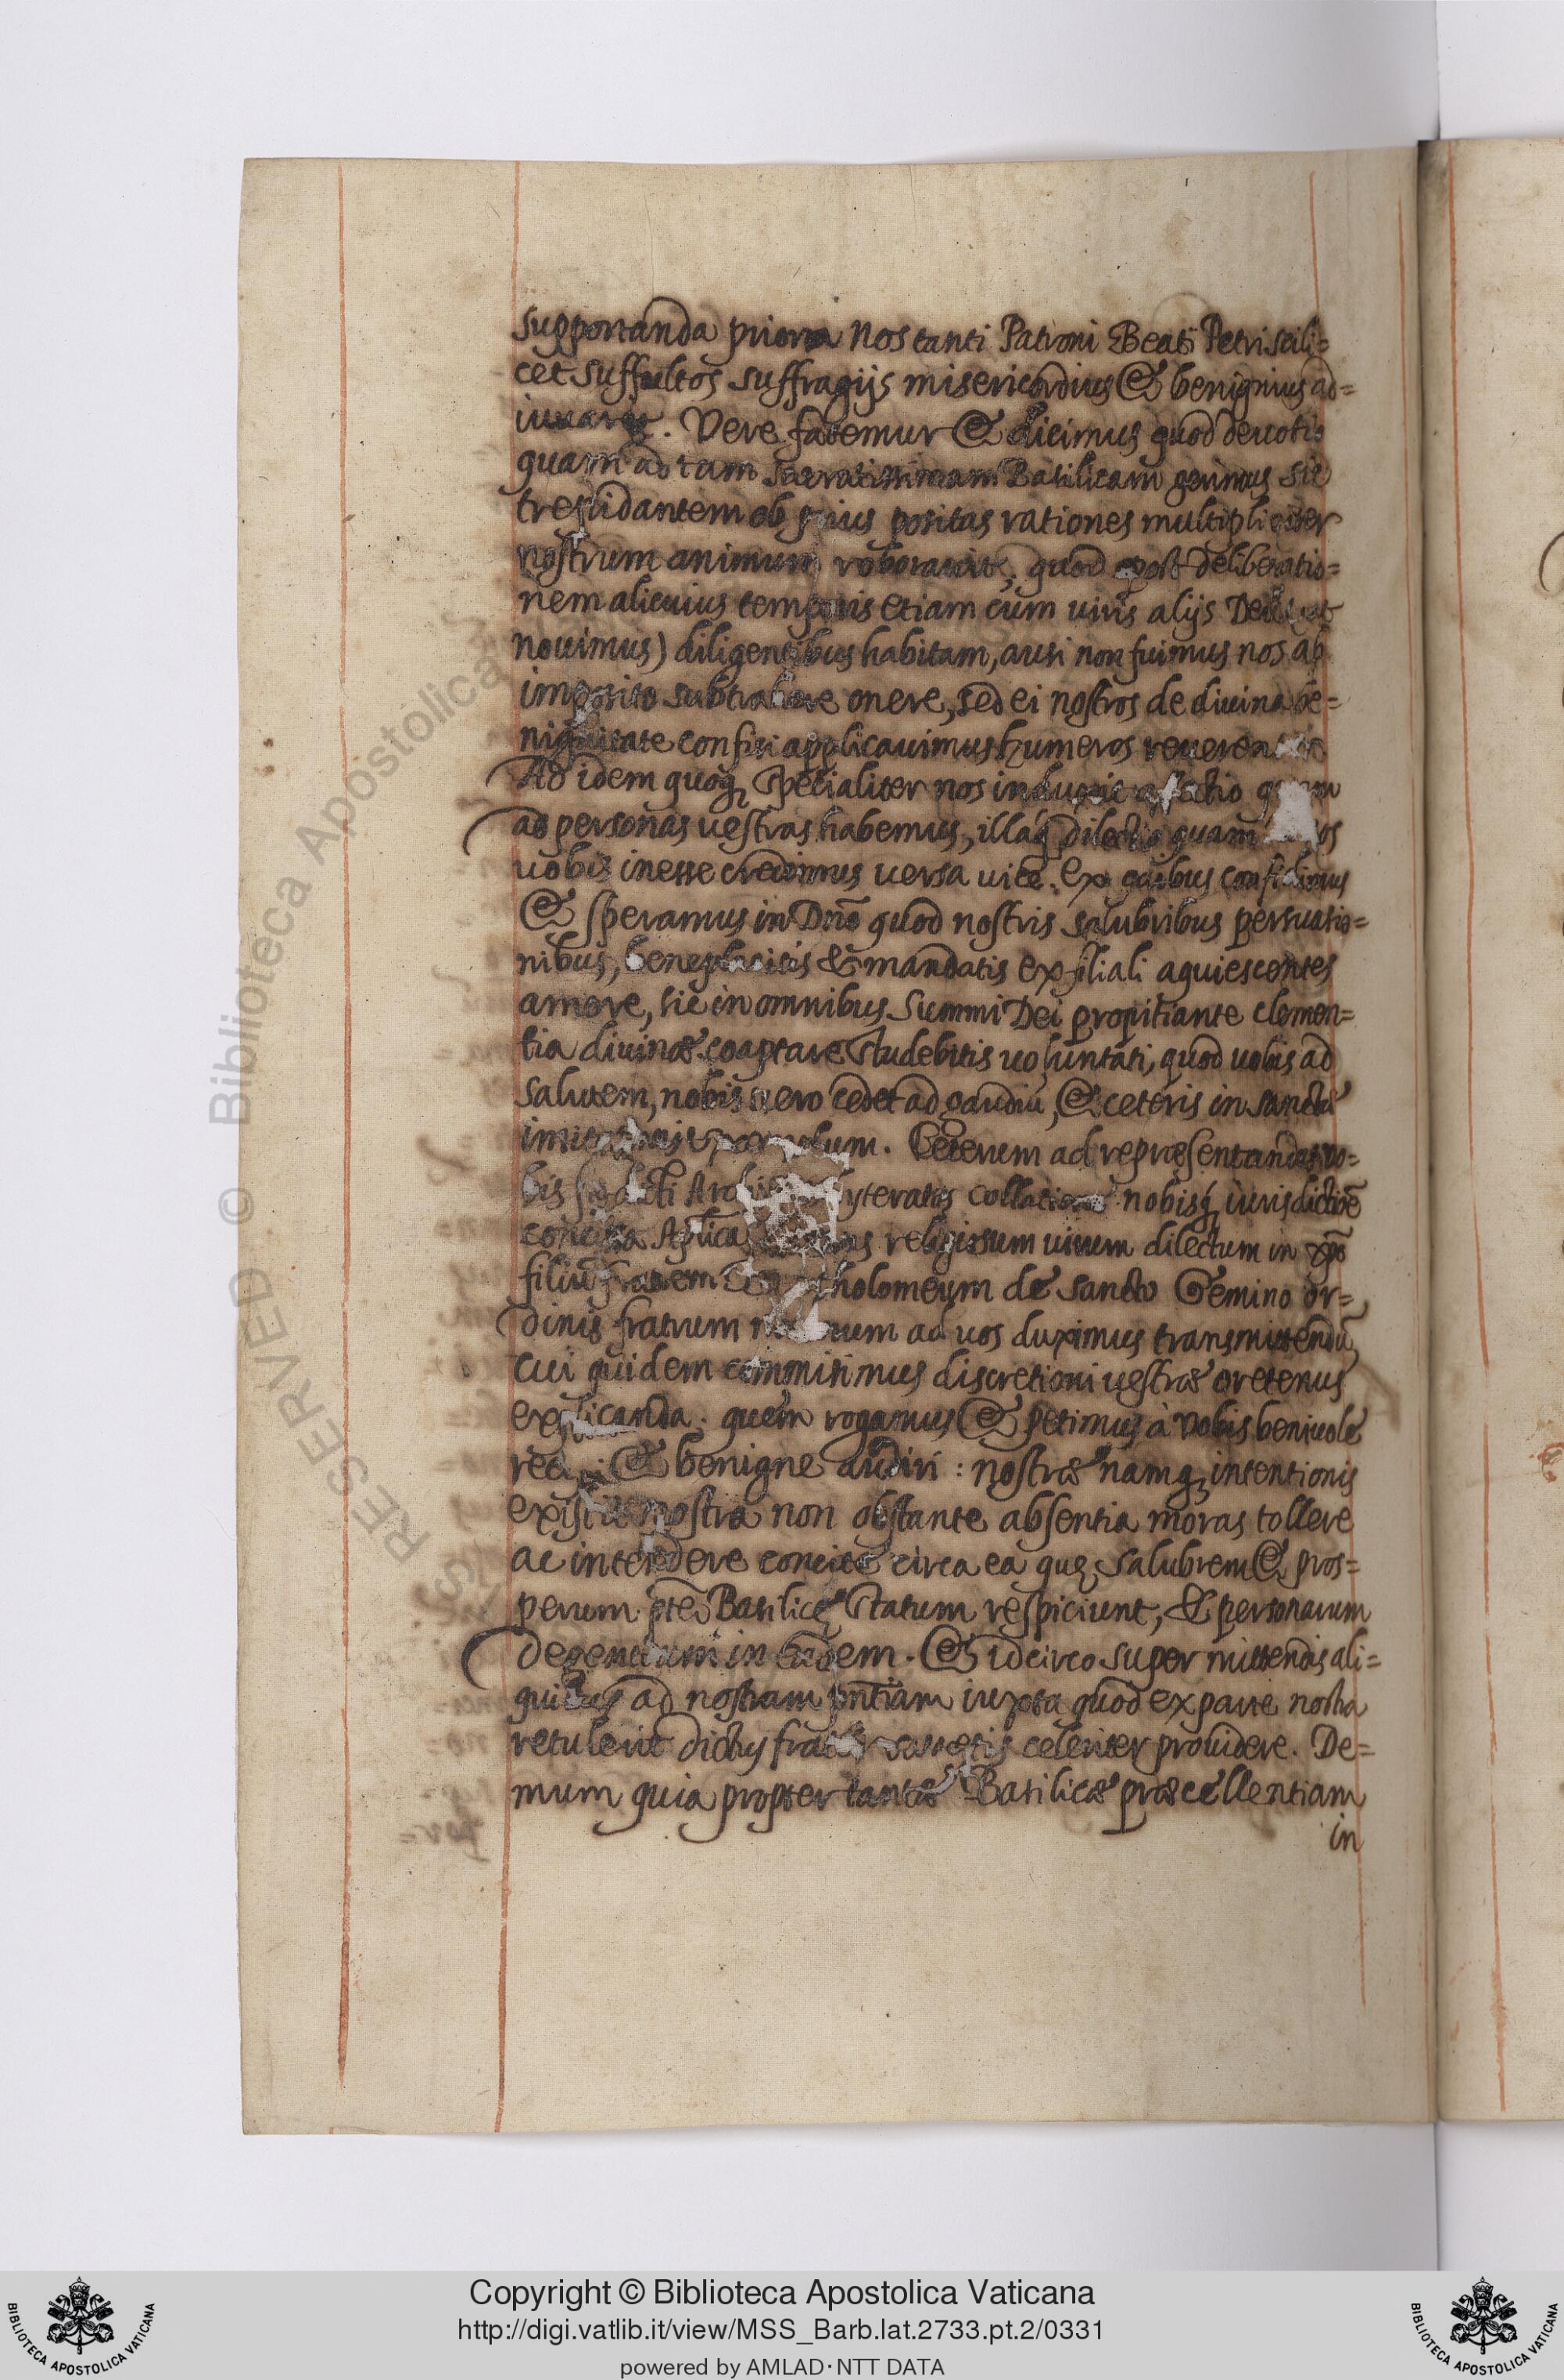 supportanda priora nos tanti Patroni Beati Petri scili=
cet suffultos suffragijs misericordius & benignius ad=
iuuare. Vere fatemur & dicimus quod deuotio
quam ad tam sacratissimam Basilicam gerimus sic
trepidantem ob prius positas rationes multipliciter
nostrum animum roborauit, quod post deliberatio=
nem alicuius temporis etiam cum uiris alijs Deum
nouimus) diligentibus habitam, ausi non fuimus nos ab
imposito subtrahere onere, sed ei nostros de diuina be=
nignitate confisi applicauimus humeros reuerenter
Ad idem quoq; specialiter nos induxit affectio quam
ad personas uestras habemus, illaq; dilectio quam
uobis inesse credimus uersa uice. Ex quibus confidimus
& speramus in Dño quod nostris salubribus persuasio=
nibus, beneplacitis & mandatis ex filiali aquiescentes
amore, sic in omnibus summi Dei propitiante clemen=
tia diuinæ coaptare studebitis uoluntati, quod uobis ad
salutem, nobis uero cedet ad gaudiũ, & ceteris in sancta
Ceterum ad repræsentandas uo=
bis collatione nobisq; iurisdictiõe
concessa Aplica religiosum uirum dilectum in xp̃o
filiũ fratrem Bartholomeum de Sancto Gemino or=
dinis fratrum ad uos duximus transmittendũ,
cui quidem commisimus discretioni uestræ oretenus
explicanda. quem rogamus & petimus à Vobis beniuole
recipi & benigne audiri: nostræ namq; intentionis
existit nostra non obstante absentia moras tollere
ac intendere concite circa ea quę salubrem & pros=
perum pte Basilicę statum respiciunt, & personarum
degentium in eadem. & idcirco super mittendis ali=
quibus ad nostram pñtiam iuxta quod ex parte nostra
retulerit dictus frater uelitis celeriter prouidere. De=
mum quia propter tantæ Basilicæ præcellentiam
in
Copyright © Biblioteca Apostolica Vaticana
http://digi.vatlib.it/view/MSS_Barb.lat.2733.pt.2/0331
powered by AMLAD·NTT DATA
BIBLIOTECA APOSTOLICA VATICANA
BIBLIOTECA APOSTOLICA VATICANA